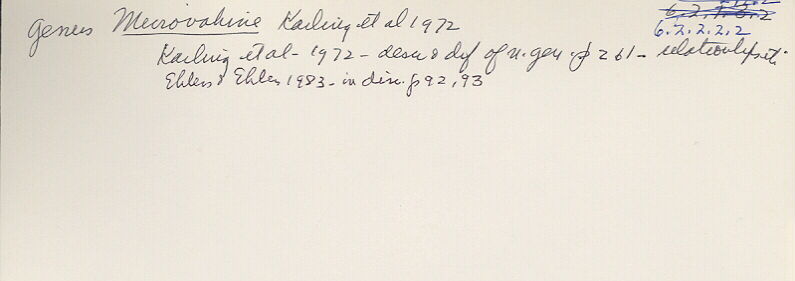 Genus Mecrovahine Karling et al 1972
6.2.2.2.2
Karling et al - 1972 - descr & def of n. gen. p 261 - relationships etc.
Ehlers & Ehlers 1983 - in disc. p 92, 93